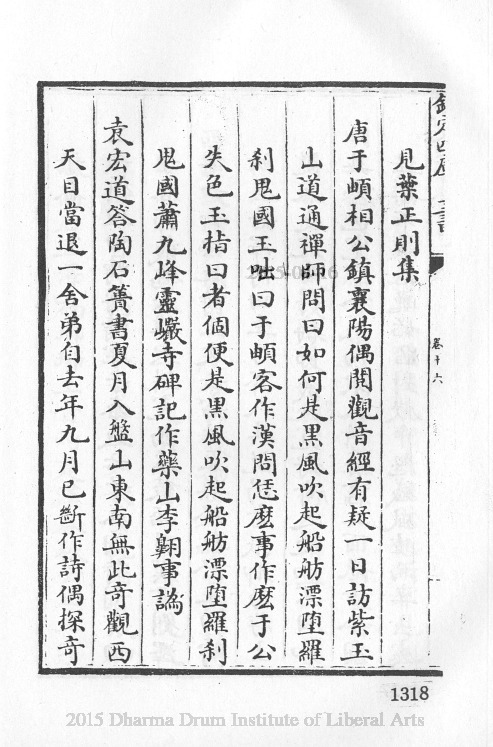 欽定四庫全書
卷十六
見葉正則集
唐于頔相公鎮襄陽偶閱觀音經有疑一日訪紫玉
山道通禪師問曰如何是黒風吹起船舫漂堕羅
刹鬼國玉咄曰于頔客作漢問恁麽事作麽于公
失色玉指曰者個便是黒風吹起船舫漂堕羅刹
鬼國蕭九峰靈巖寺碑記作藥山李翺事譌
袁宏道答陶石簣書夏月入盤山東南無此奇觀西
天目當退一舍弟自去年九月已斷作詩偶探奇
1318
2015 Dharma Drum Institute of Liberal Arts